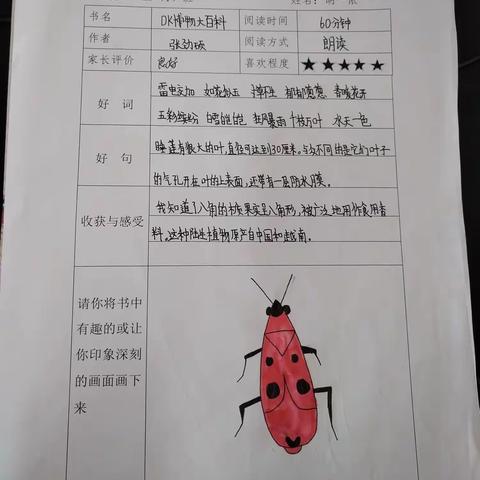 书名 DK博物大百科 阅读时间 60分钟
作者 张劲硕 阅读方式 朗读
家长评价 良好 喜欢程度 ★★★★★
好 词
雷电交加 如花似玉 郁郁葱葱 春暖花开
五彩缤纷 白雪皑皑 狂风暴雨 千枝万叶 水天一色
好 句
睡莲有很大的叶,直径可达到30厘米。与众不同的是它们叶子
的气孔开在叶的上表面,还带有一层防水膜。
收获与感受
我知道了八角的木质果实呈八角形,被广泛地用作食用香
料。这种陆生植物原产自中国和越南。
请你将书中
有趣的或让
你印象深刻
的画面画下
来